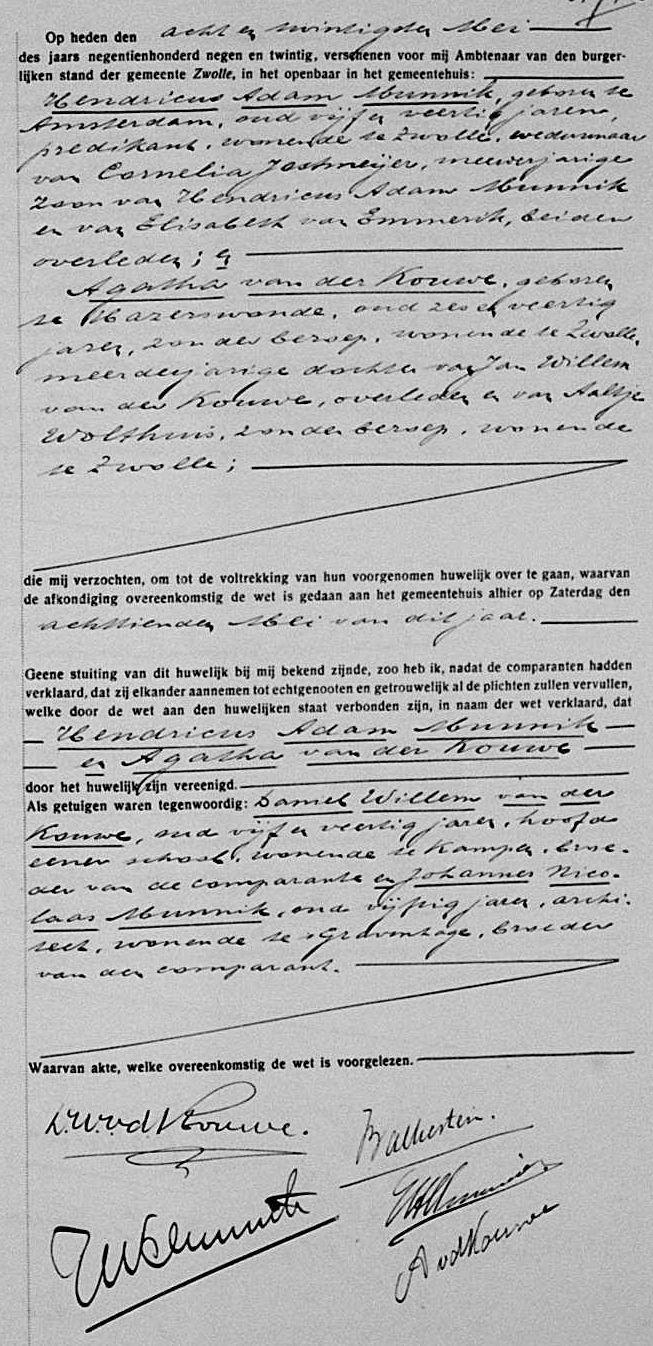 Op heden den acht en twintigsten Mei
des jaars negentienhonderd negen en twintig, verschenen voor mij Ambtenaar van den burger-
lijken stand der gemeente Zwolle, in het openbaar in het gemeentehuis:
Hendricus Adam Munnik, geboren te
Amsterdam, oud vijf en veertig jaren,
predikant, wonende te Zwolle, weduwnaar
van Cornelia Jostmeijer, meerderjarige
zoon van Hendricus Adam Munnik
en van Elisabeth van Emmerik, beiden
overleden; en
Agatha van der Kouwe, geboren
te Hazerswoude, oud zes en veertig
jaren, zonder beroep, wonende te Zwolle,
meerderjarige dochter van Jan Willem
van der Kouwe, overleden en van Aaltje
Wolthuis, zonder beroep, wonende
te Zwolle;
die mij verzochten, om tot de voltrekking van hun voorgenomen huwelijk over te gaan, waarvan
de afkondiging overeenkomstig de wet is gedaan aan het gemeentehuis alhier op Zaterdag den
achttienden Mei van dit jaar.
Geene stuiting van dit huwelijk bij mij bekend zijnde, zoo heb ik, nadat de comparanten hadden
verklaard, dat zij elkander aannemen tot echtgenooten en getrouwelijk al de plichten zullen vervullen,
welke door de wet aan den huwelijken staat verbonden zijn, in naam der wet verklaard, dat
Hendricus Adam Munnik
en Agatha van der Kouwe
door het huwelijk zijn vereenigd.
Als getuigen waren tegenwoordig: Daniel Willem van der
Kouwe, oud vijf en veertig jaren, hoofd
eener school, wonende te Kampen, broe-
der van de comparante en Johannes Nico-
laas Munnik, oud vijftig jaren, archi-
tect, wonende te 's Gravenhage, broeder
van den comparant.
Waarvan akte, welke overeenkomstig de wet is voorgelezen.
D.W.v.d.Kouwe.
HAMunnik
AvdKouwe